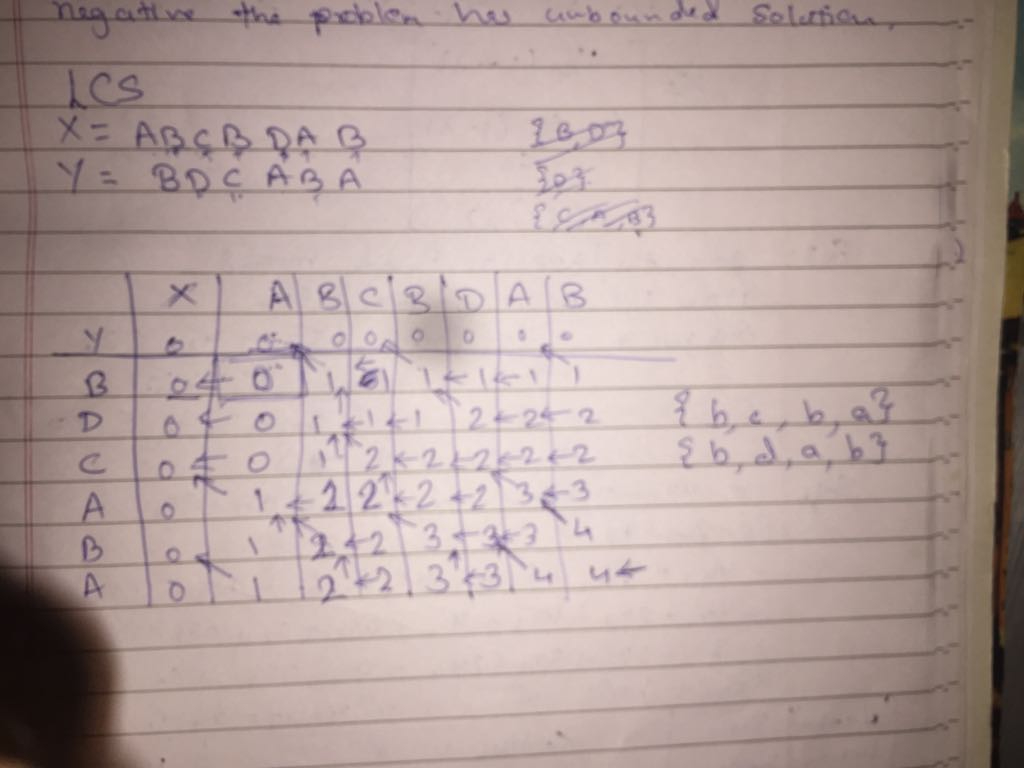 negative the problem has unbounded solution.
LCS
X = A B C B D A B
Y = B D C A B A
{B, D}
{D}
{C, A, B}
X A B C B D A B
Y 0 0 0 0 0 0 0 0
B 0 ← 0 1 1 1 ← 1 ← 1 1
D 0 ← 0 1 ← 1 ← 1 2 ← 2 ← 2 { b, c, b, a }
C 0 ← 0 1 2 ← 2 ← 2 ← 2 ← 2 { b, d, a, b }
A 0 1 ← 2 2 ← 2 ← 2 3 ← 3
B 0 1 2 ← 2 3 ← 3 ← 3 4
A 0 1 2 ← 2 3 ← 3 4 4 ←